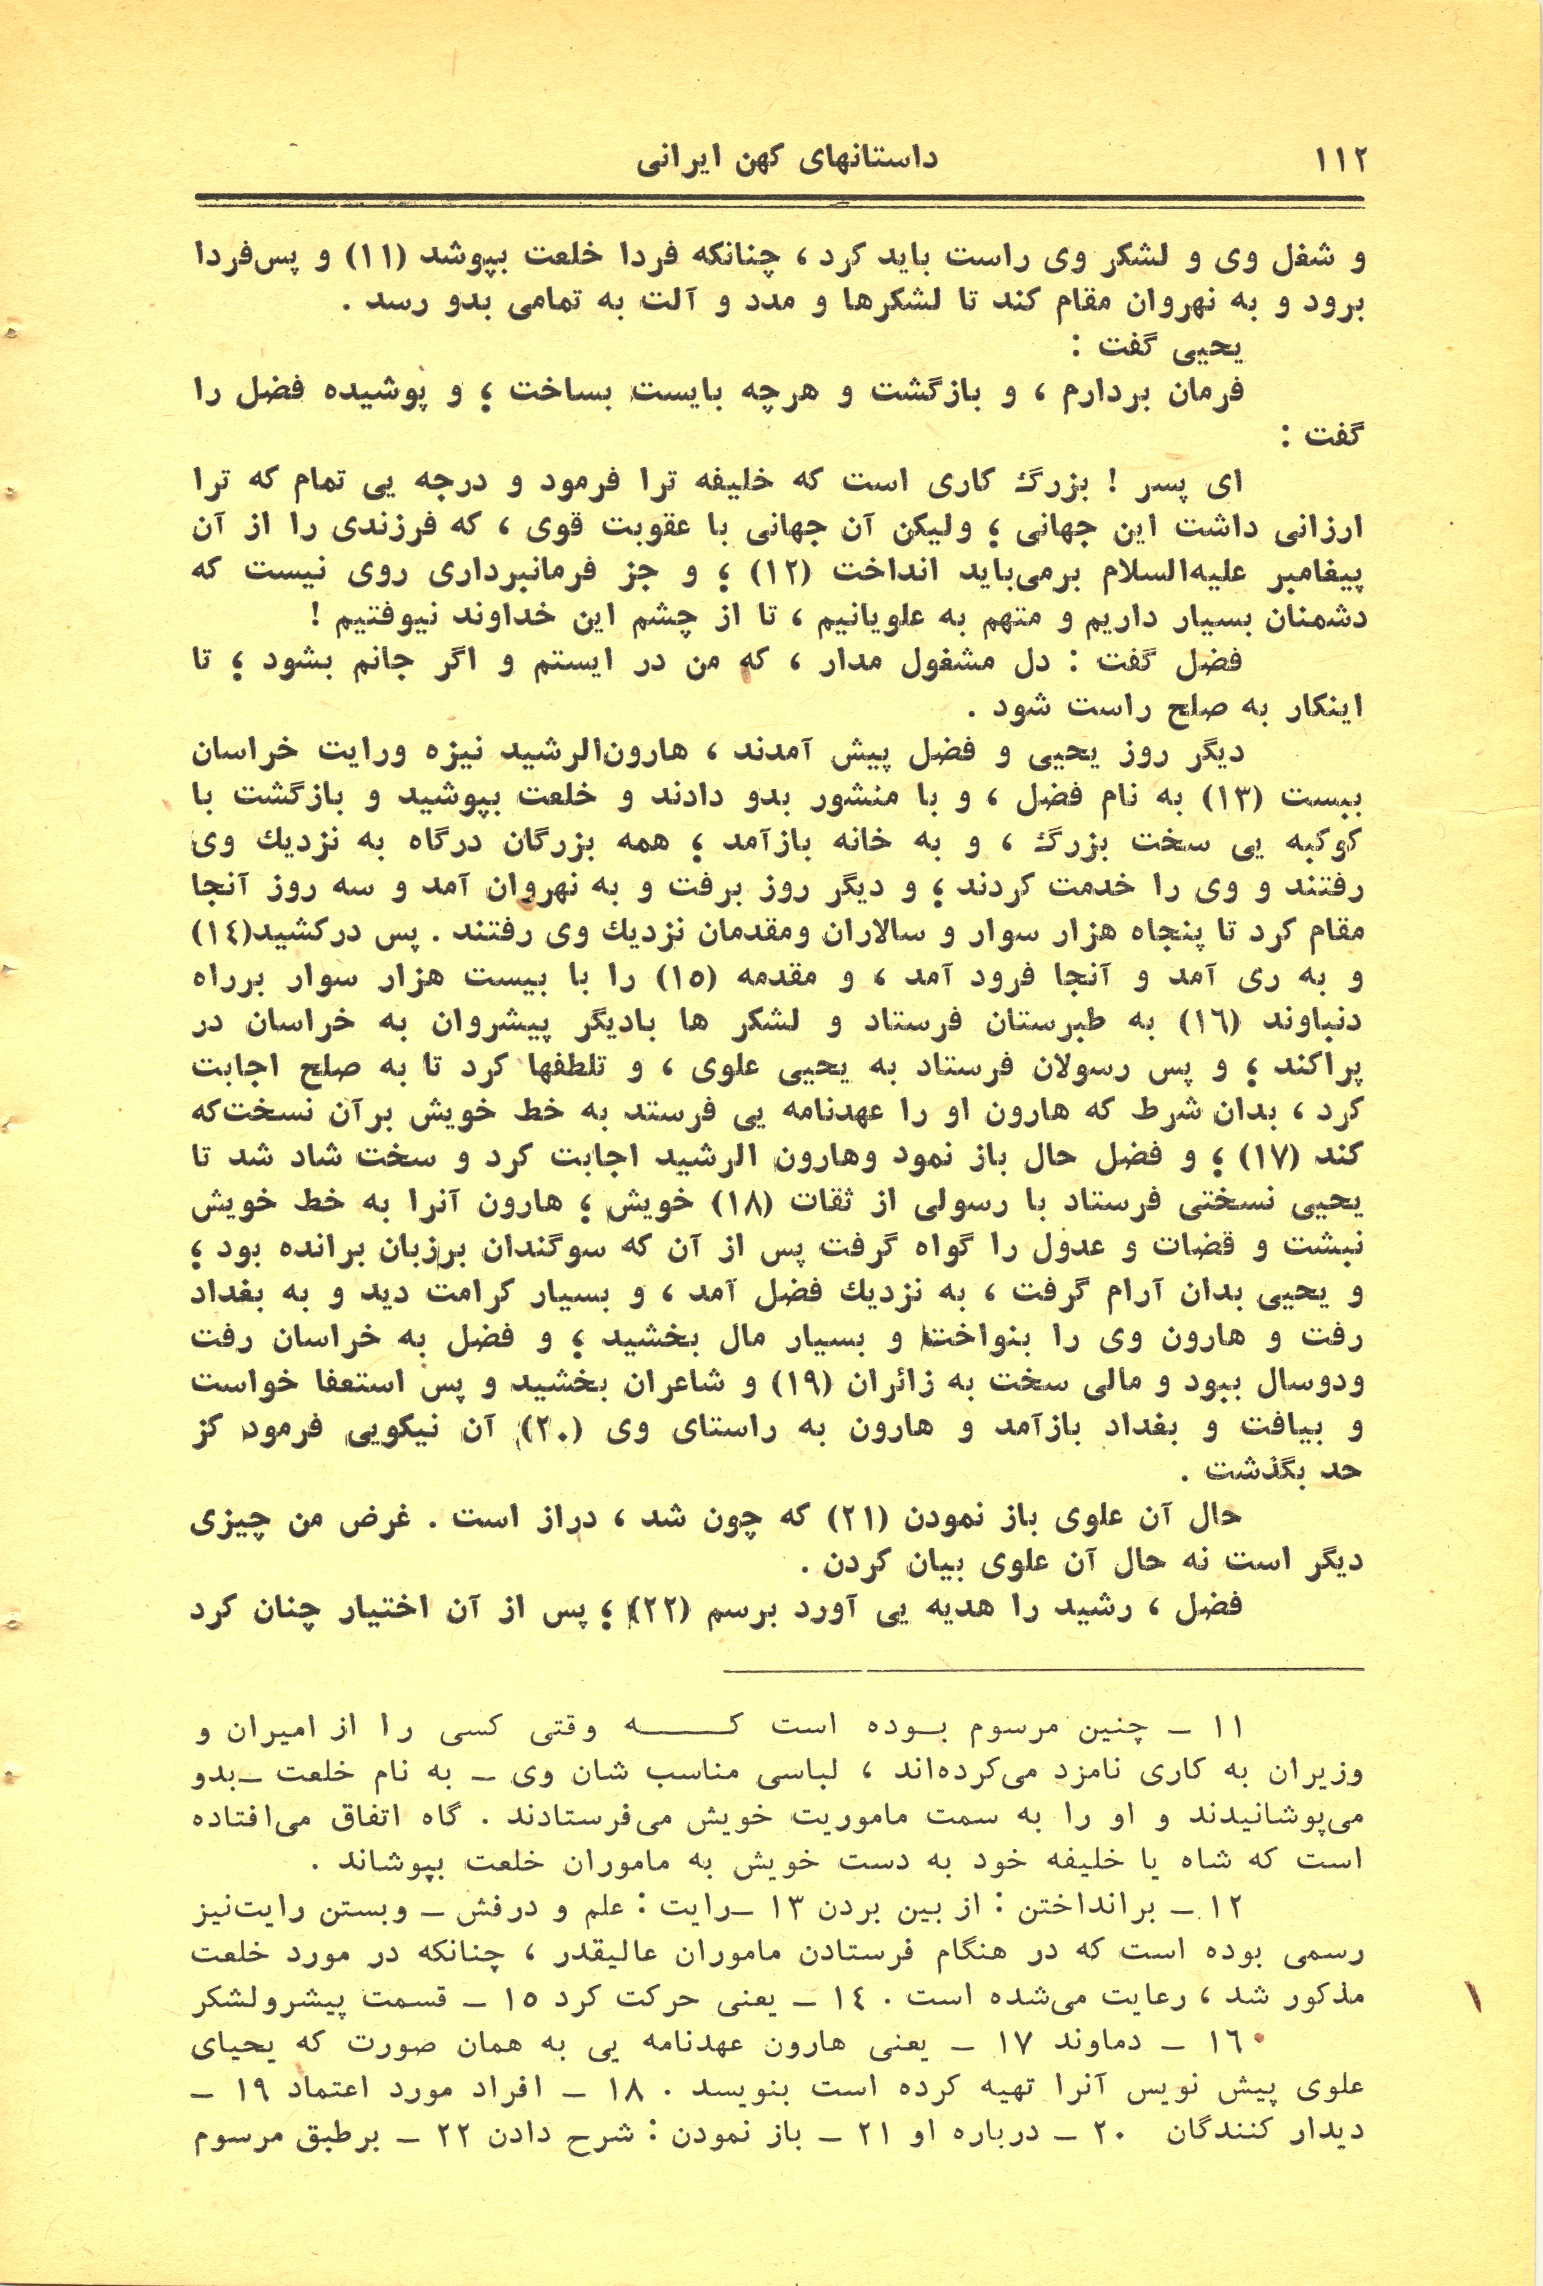 ۱۱۲
داستانهای کهن ایرانی
و شغل وی و لشکر وی راست باید کرد ، چنانکه فردا خلعت بپوشد (۱۱) و پس‌فردا
برود و به نهروان مقام کند تا لشکرها و مدد و آلت به تمامی بدو رسد .
یحیی گفت :
فرمان بردارم ، و بازگشت و هرچه بایست بساخت ؛ و پوشیده فضل را
گفت :
ای پسر ! بزرگ کاری است که خلیفه ترا فرمود و درجه یی تمام که ترا
ارزانی داشت این جهانی ؛ ولیکن آن جهانی با عقوبت قوی ، که فرزندی را از آن
پیغامبر علیه‌السلام برمی‌باید انداخت (۱۲) ؛ و جز فرمانبرداری روی نیست که
دشمنان بسیار داریم و متهم به علویانیم ، تا از چشم این خداوند نیوفتیم !
فضل گفت : دل مشغول مدار ، که من در ایستم و اگر جانم بشود ؛ تا
اینکار به صلح راست شود .
دیگر روز یحیی و فضل پیش آمدند ، هارون‌الرشید نیزه ورایت خراسان
ببست (۱۳) به نام فضل ، و با منشور بدو دادند و خلعت بپوشید و بازگشت با
کوکبه یی سخت بزرگ ، و به خانه بازآمد ؛ همه بزرگان درگاه به نزدیك وی
رفتند و وی را خدمت کردند ؛ و دیگر روز برفت و به نهروان آمد و سه روز آنجا
مقام کرد تا پنجاه هزار سوار و سالاران ومقدمان نزدیك وی رفتند . پس درکشید(۱٤)
و به ری آمد و آنجا فرود آمد ، و مقدمه (۱٥) را با بیست هزار سوار برراه
دنباوند (۱٦) به طبرستان فرستاد و لشکر ها بادیگر پیشروان به خراسان در
پراکند ؛ و پس رسولان فرستاد به یحیی علوی ، و تلطفها کرد تا به صلح اجابت
کرد ، بدان شرط که هارون او را عهدنامه یی فرستد به خط خویش برآن نسخت‌که
کند (۱۷) ؛ و فضل حال باز نمود وهارون الرشید اجابت کرد و سخت شاد شد تا
یحیی نسختی فرستاد با رسولی از ثقات (۱۸) خویش ؛ هارون آنرا به خط خویش
نبشت و قضات و عدول را گواه گرفت پس از آن که سوگندان برزبان برانده بود ؛
و یحیی بدان آرام گرفت ، به نزدیك فضل آمد ، و بسیار کرامت دید و به بغداد
رفت و هارون وی را بنواخت و بسیار مال بخشید ؛ و فضل به خراسان رفت
ودوسال ببود و مالی سخت به زائران (۱۹) و شاعران بخشید و پس استعفا خواست
و بیافت و بغداد بازآمد و هارون به راستای وی (۲۰) آن نیکویی فرمود کز
حد بگذشت .
حال آن علوی باز نمودن (۲۱) که چون شد ، دراز است . غرض من چیزی
دیگر است نه حال آن علوی بیان کردن .
فضل ، رشید را هدیه یی آورد برسم (۲۲) ؛ پس از آن اختیار چنان کرد
۱۱ ـ چنین مرسوم بـوده است کـــه وقتی کسی را از امیران و
وزیران به کاری نامزد می‌کرده‌اند ، لباسی مناسب شان وی ـ به نام خلعت ـ‌بدو
می‌پوشانیدند و او را به سمت ماموریت خویش می‌فرستادند . گاه اتفاق می‌افتاده
است که شاه یا خلیفه خود به دست خویش به ماموران خلعت بپوشاند .
۱۲ ـ برانداختن : از بین بردن ۱۳ ـ‌رایت : علم و درفش ـ وبستن رایت‌نیز
رسمی بوده است که در هنگام فرستادن ماموران عالیقدر ، چنانکه در مورد خلعت
مذکور شد ، رعایت می‌شده است . ۱٤ ـ یعنی حرکت کرد ۱٥ ـ قسمت پیشرولشکر
۱٦ ـ دماوند ۱۷ ـ یعنی هارون عهدنامه یی به همان صورت که یحیای
علوی پیش نویس آنرا تهیه کرده است بنویسد . ۱۸ ـ افراد مورد اعتماد ۱۹ ـ
دیدار کنندگان ۲۰ ـ درباره او ۲۱ ـ باز نمودن : شرح دادن ۲۲ ـ برطبق مرسوم